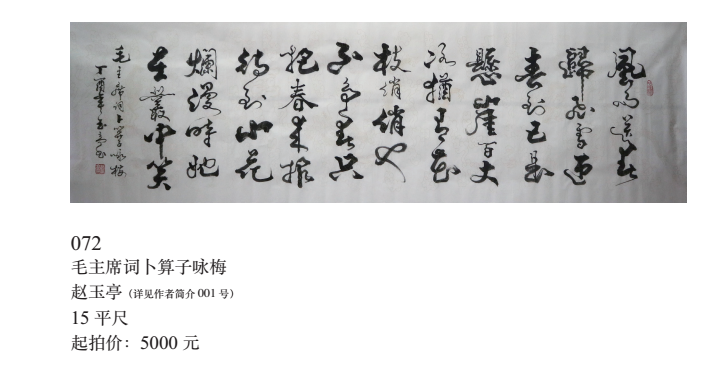 風雨送春
歸飛雪迎
春到已是
懸崖百丈
冰猶有花
枝俏俏也
不争春只
把春来报
待到山花
爛漫時她
在叢中笑
毛主席词卜算子咏梅
丁酉年玉亭书
072
毛主席词卜算子咏梅
赵玉亭（详见作者简介 001 号）
15 平尺
起拍价：5000 元